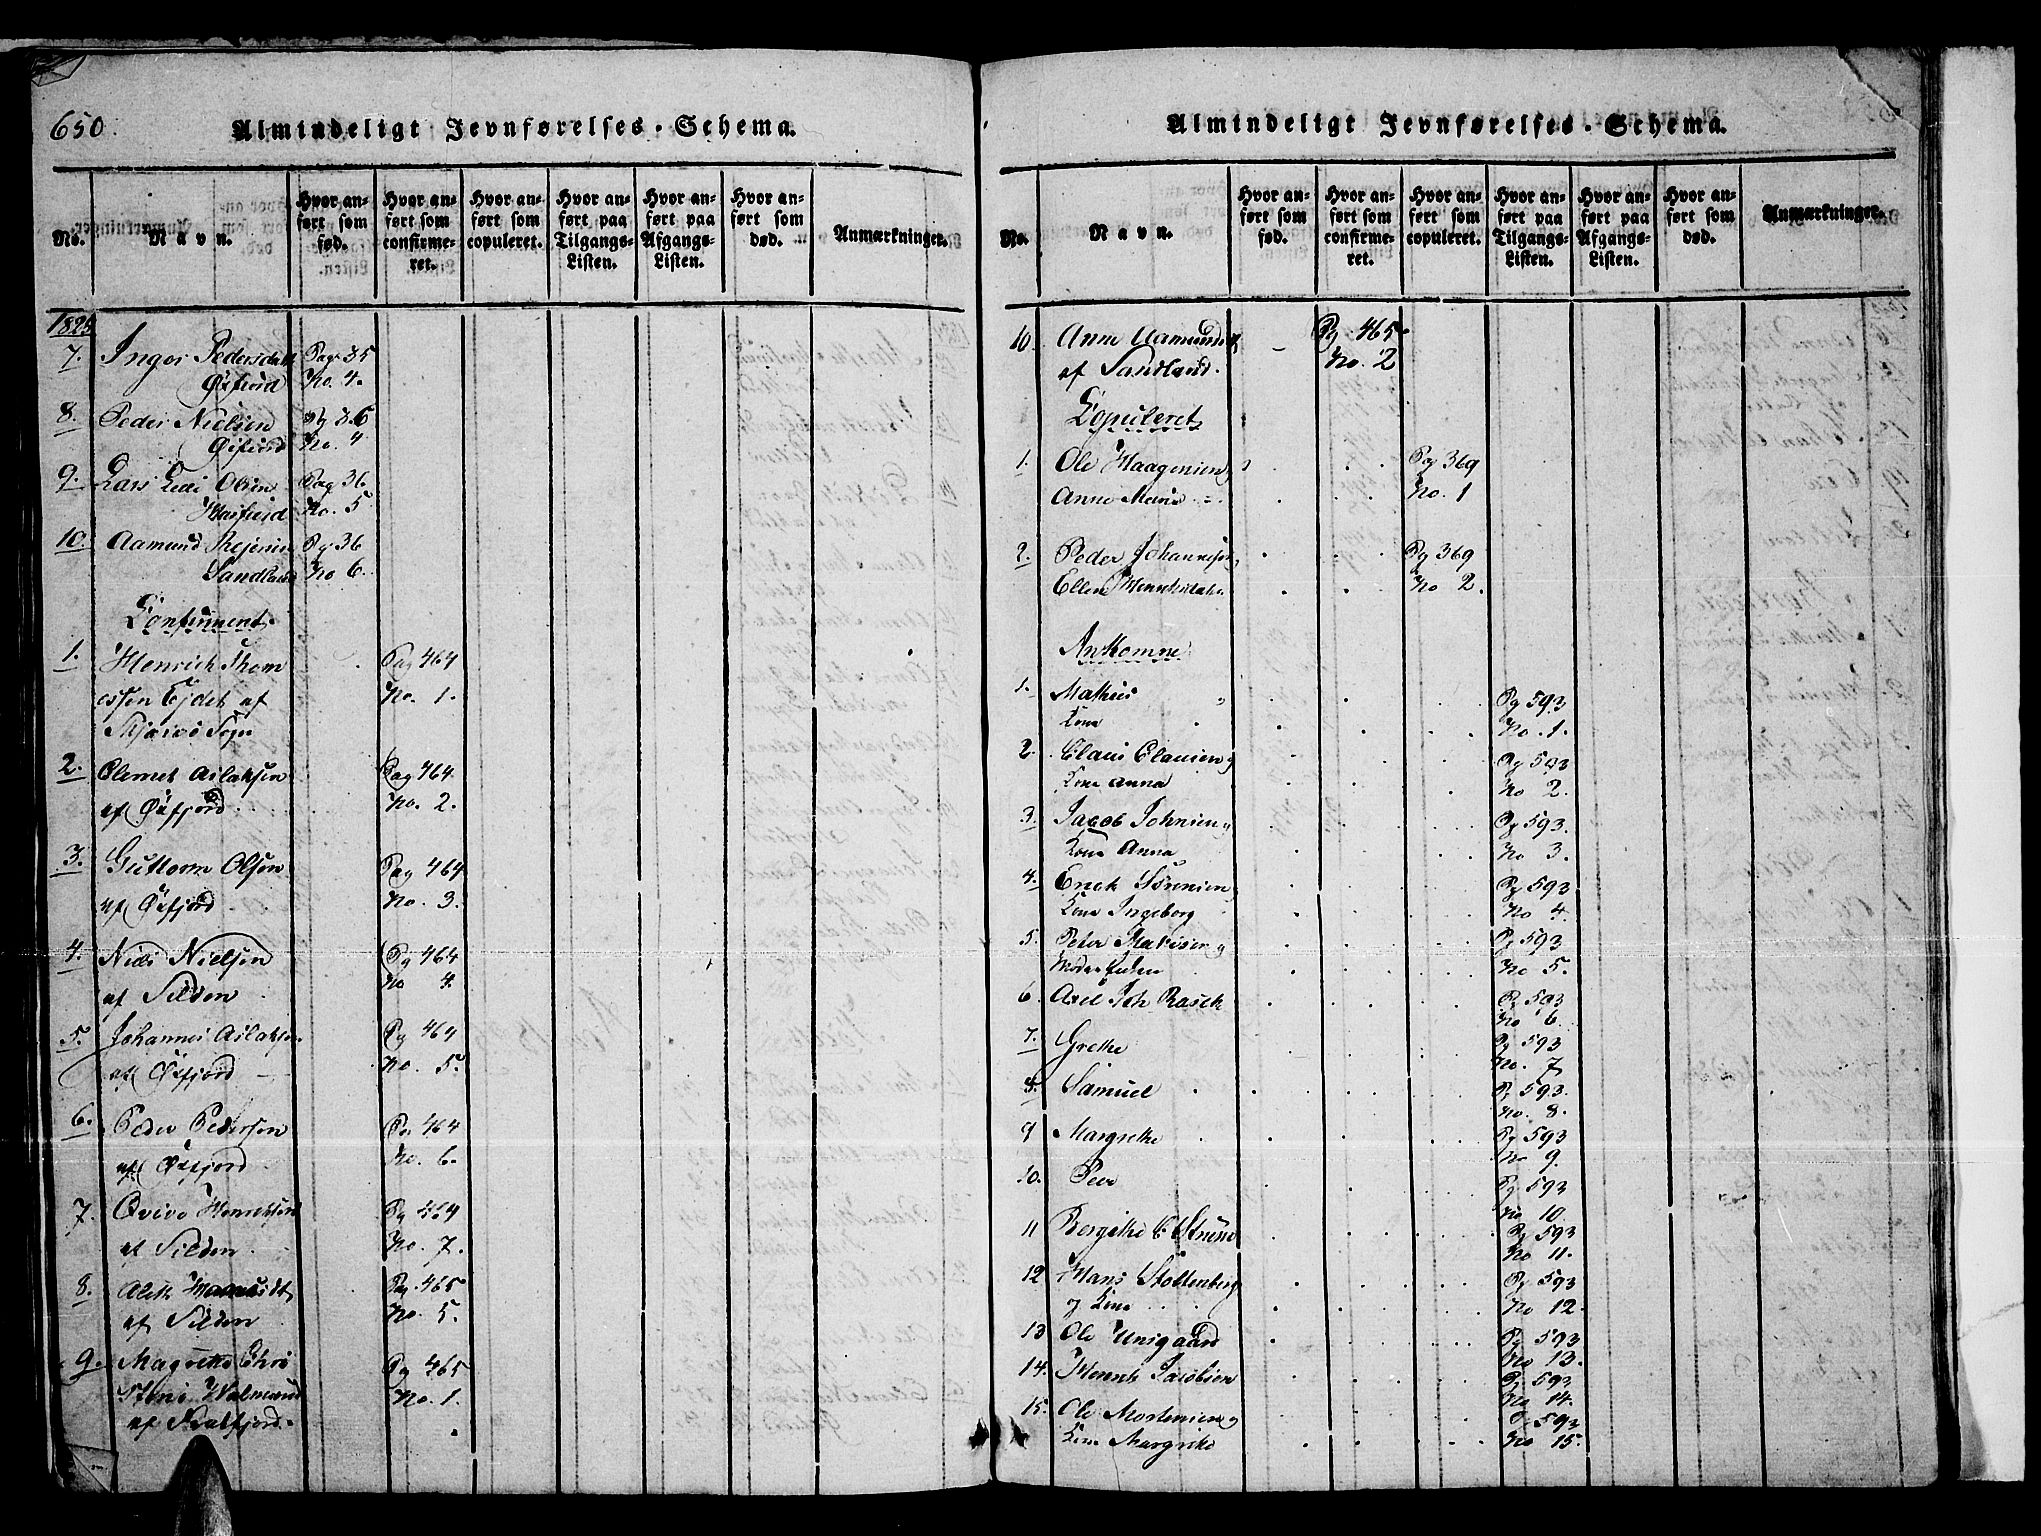 650.
Almindeligt Jevnførelses-Schema.
No.
Navn.
Hvor anført som fød.
Hvor anført som confirmeret.
Hvor anført som copuleret.
Hvor anført paa Tilgangs-Listen.
Hvor anført paa Afgangs-Listen.
Hvor anført som død.
Anmærkninger.
1825
7. Inger Pedersdatt Pag 35
Øxfiord No. 4.
8. Peder Nielsen Pg 36
Øxfiord No. 4
9. Lars Olsen Pag 36
No. 5
10. Aamund Pg 36
Sandland No 6.
Confirmeret
1. Henrich Thom Pag 464
essen Ejdet af No. 1.
Skjærvø Sogn
2. Clemet Aslaksen Pag 464
af Øxfjord No. 2.
3. Guttorm Olsen Pag 464
af Øxfjord No. 3.
4. Niels Nielsen Pg 464
af Silden No 4.
5. Johannes Aslaksen Pg 464
af Øxfjord No. 5.
6. Peder Pedersen Pg 464
af Øxfjord No. 6.
7. Henrichsen Pg 464
af Silden No. 7.
8. Pag 465
af Silden No. 5.
9. Magrethe Chri Pg 465
No. 1.
af
Almindeligt Jevnførelses-Schema.
No.
Navn.
Hvor anført som fød.
Hvor anført som confirmeret.
Hvor anført som copuleret.
Hvor anført paa Tilgangs-Listen.
Hvor anført paa Afgangs-Listen.
Hvor anført som død.
Anmærkninger.
10. Anne Aamundsd Pg 465
af Sandland. No. 2
Copuleret
1. Ole Haagensen Pag 369
Anne Marie No. 1
2. Peder Johannesen Pg 369
Ellen No 2.
Ankomne
1. Mathis Pg 593
Kone No. 1.
2. Claus Clausen Pg 593
Kone Anna No 2.
3. Jacob Johnsen Pg 593.
Kone Anna No 3.
4. Erich Sørensen Pg 593
Kone Ingeborg No 4.
5. Peter Mathisen og Pg 593
Moder No 5.
6. Axel Joh Rasch Pg 593
No 6.
7. Grethe Pg 593
No. 7
8. Samuel Pg 593.
No. 8.
9 Margrethe Pg 593
No 9.
10. Peer Pg 593
No 10.
11 Bergithe C Pg 593
No 11.
12 Hans Stoltenberg Pg 593
og Kone No 12.
13 Ole Unsgaard Pg 593
No 13.
14. Henrik Jacobsen Pg 593
No 14.
15. Ole Mortensen og Pg 593
Kone Margrethe No 15.